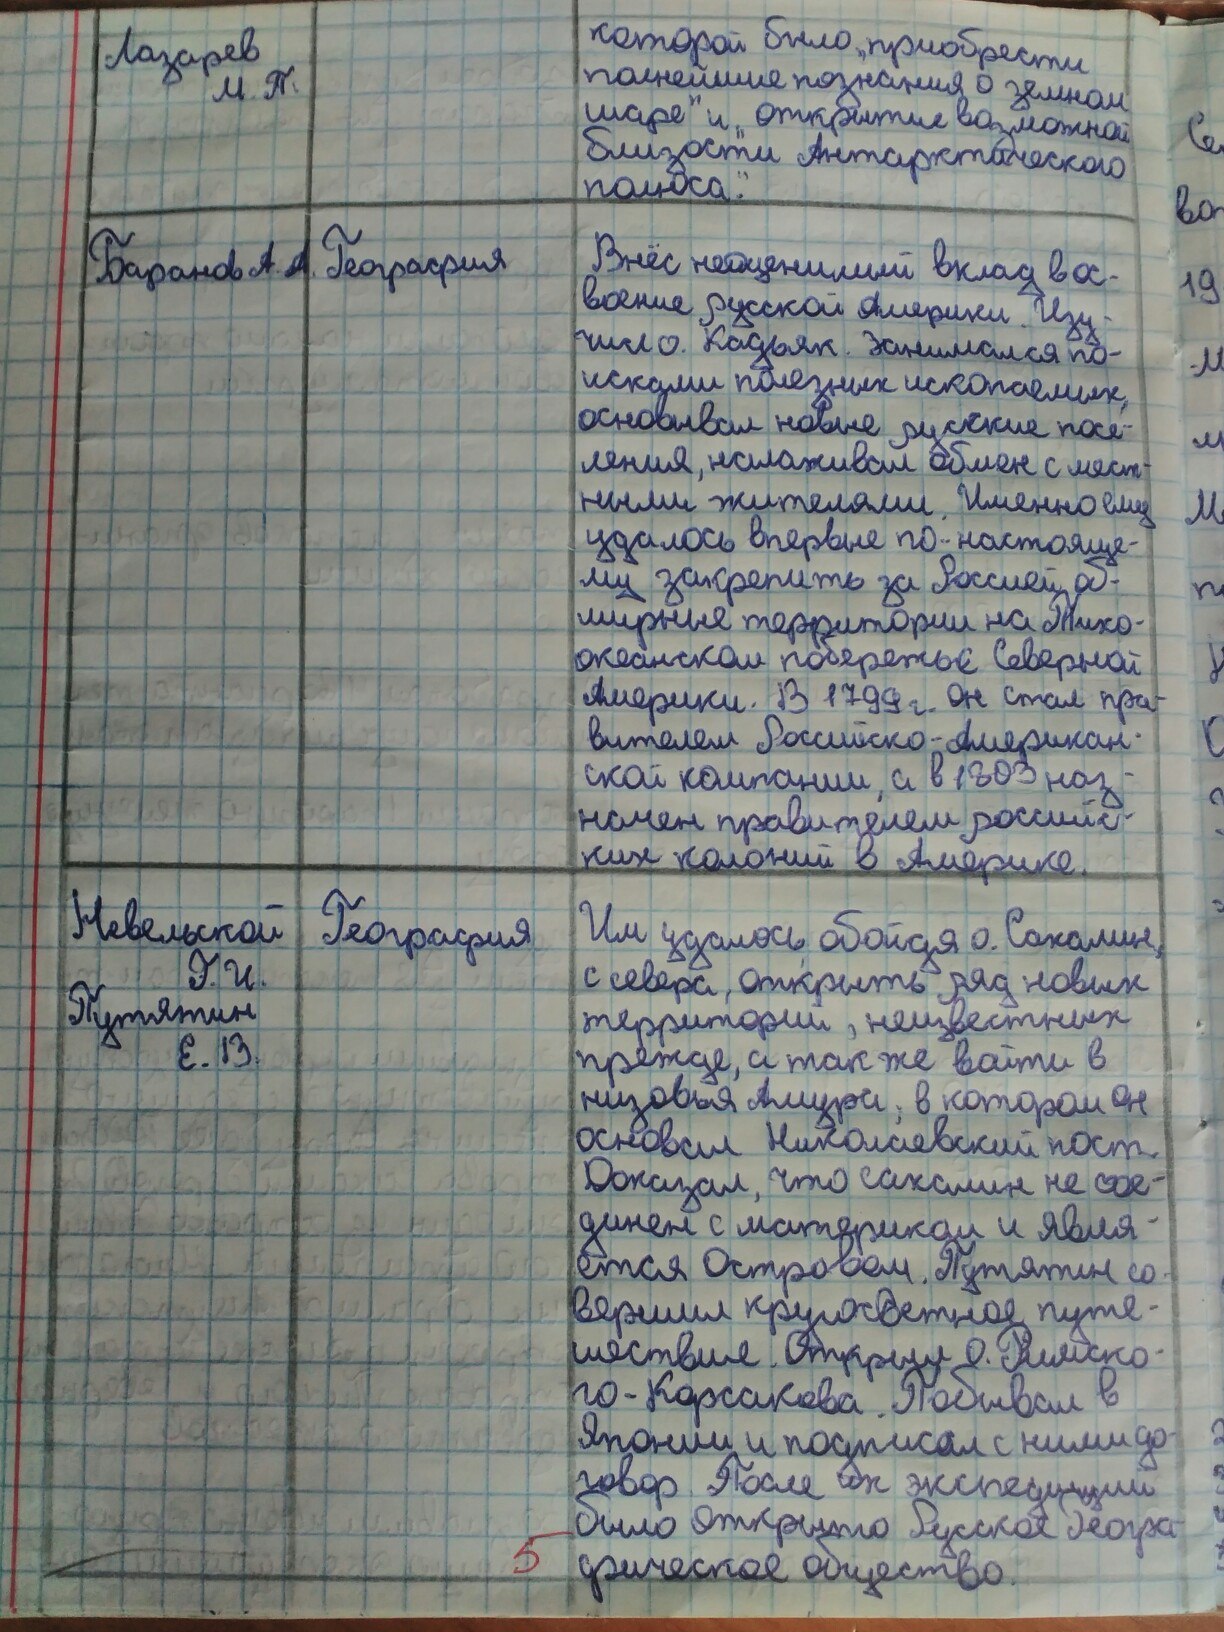 Лазарев
М. П.
которой было „приобрести
полнейшие познания о земном
шаре" и „открытие возможной
близости Антарктического
полюса."
Баранов А. А.
География
Внёс неоценимый вклад в ос-
воение русской Америки. Изу-
чил о. Кадьяк. Занимался по-
исками полезных ископаемых,
основывал новые русские посе-
ления, налаживал обмен с мест-
ными жителями. Именно ему
удалось впервые по-настояще-
му закрепить за Россией об-
ширные территории на Тихо-
океанском побережье Северной
Америки. В 1799 г. он стал пра-
вителем Российско-Американ-
ской компании, а в 1803 наз-
начен правителем российс-
ких колоний в Америке.
Невельской
Г. И.
Путятин
Е. В.
География
Им удалось, обойдя о. Сахалин,
с севера, открыть ряд новых
территорий, неизвестных
прежде, а так же войти в
низовья Амура, в котором он
основал Николаевский пост.
Доказал, что Сахалин не сое-
динен с материком и явля-
ется островом. Путятин со-
вершил кругосветное путе-
шествие. Открыл о. Римско-
го-Корсакова. Побывал в
Японии и подписал с ними до-
говор. После их экспедиций
было открыто Русское Геогра-
фическое общество.
5
19